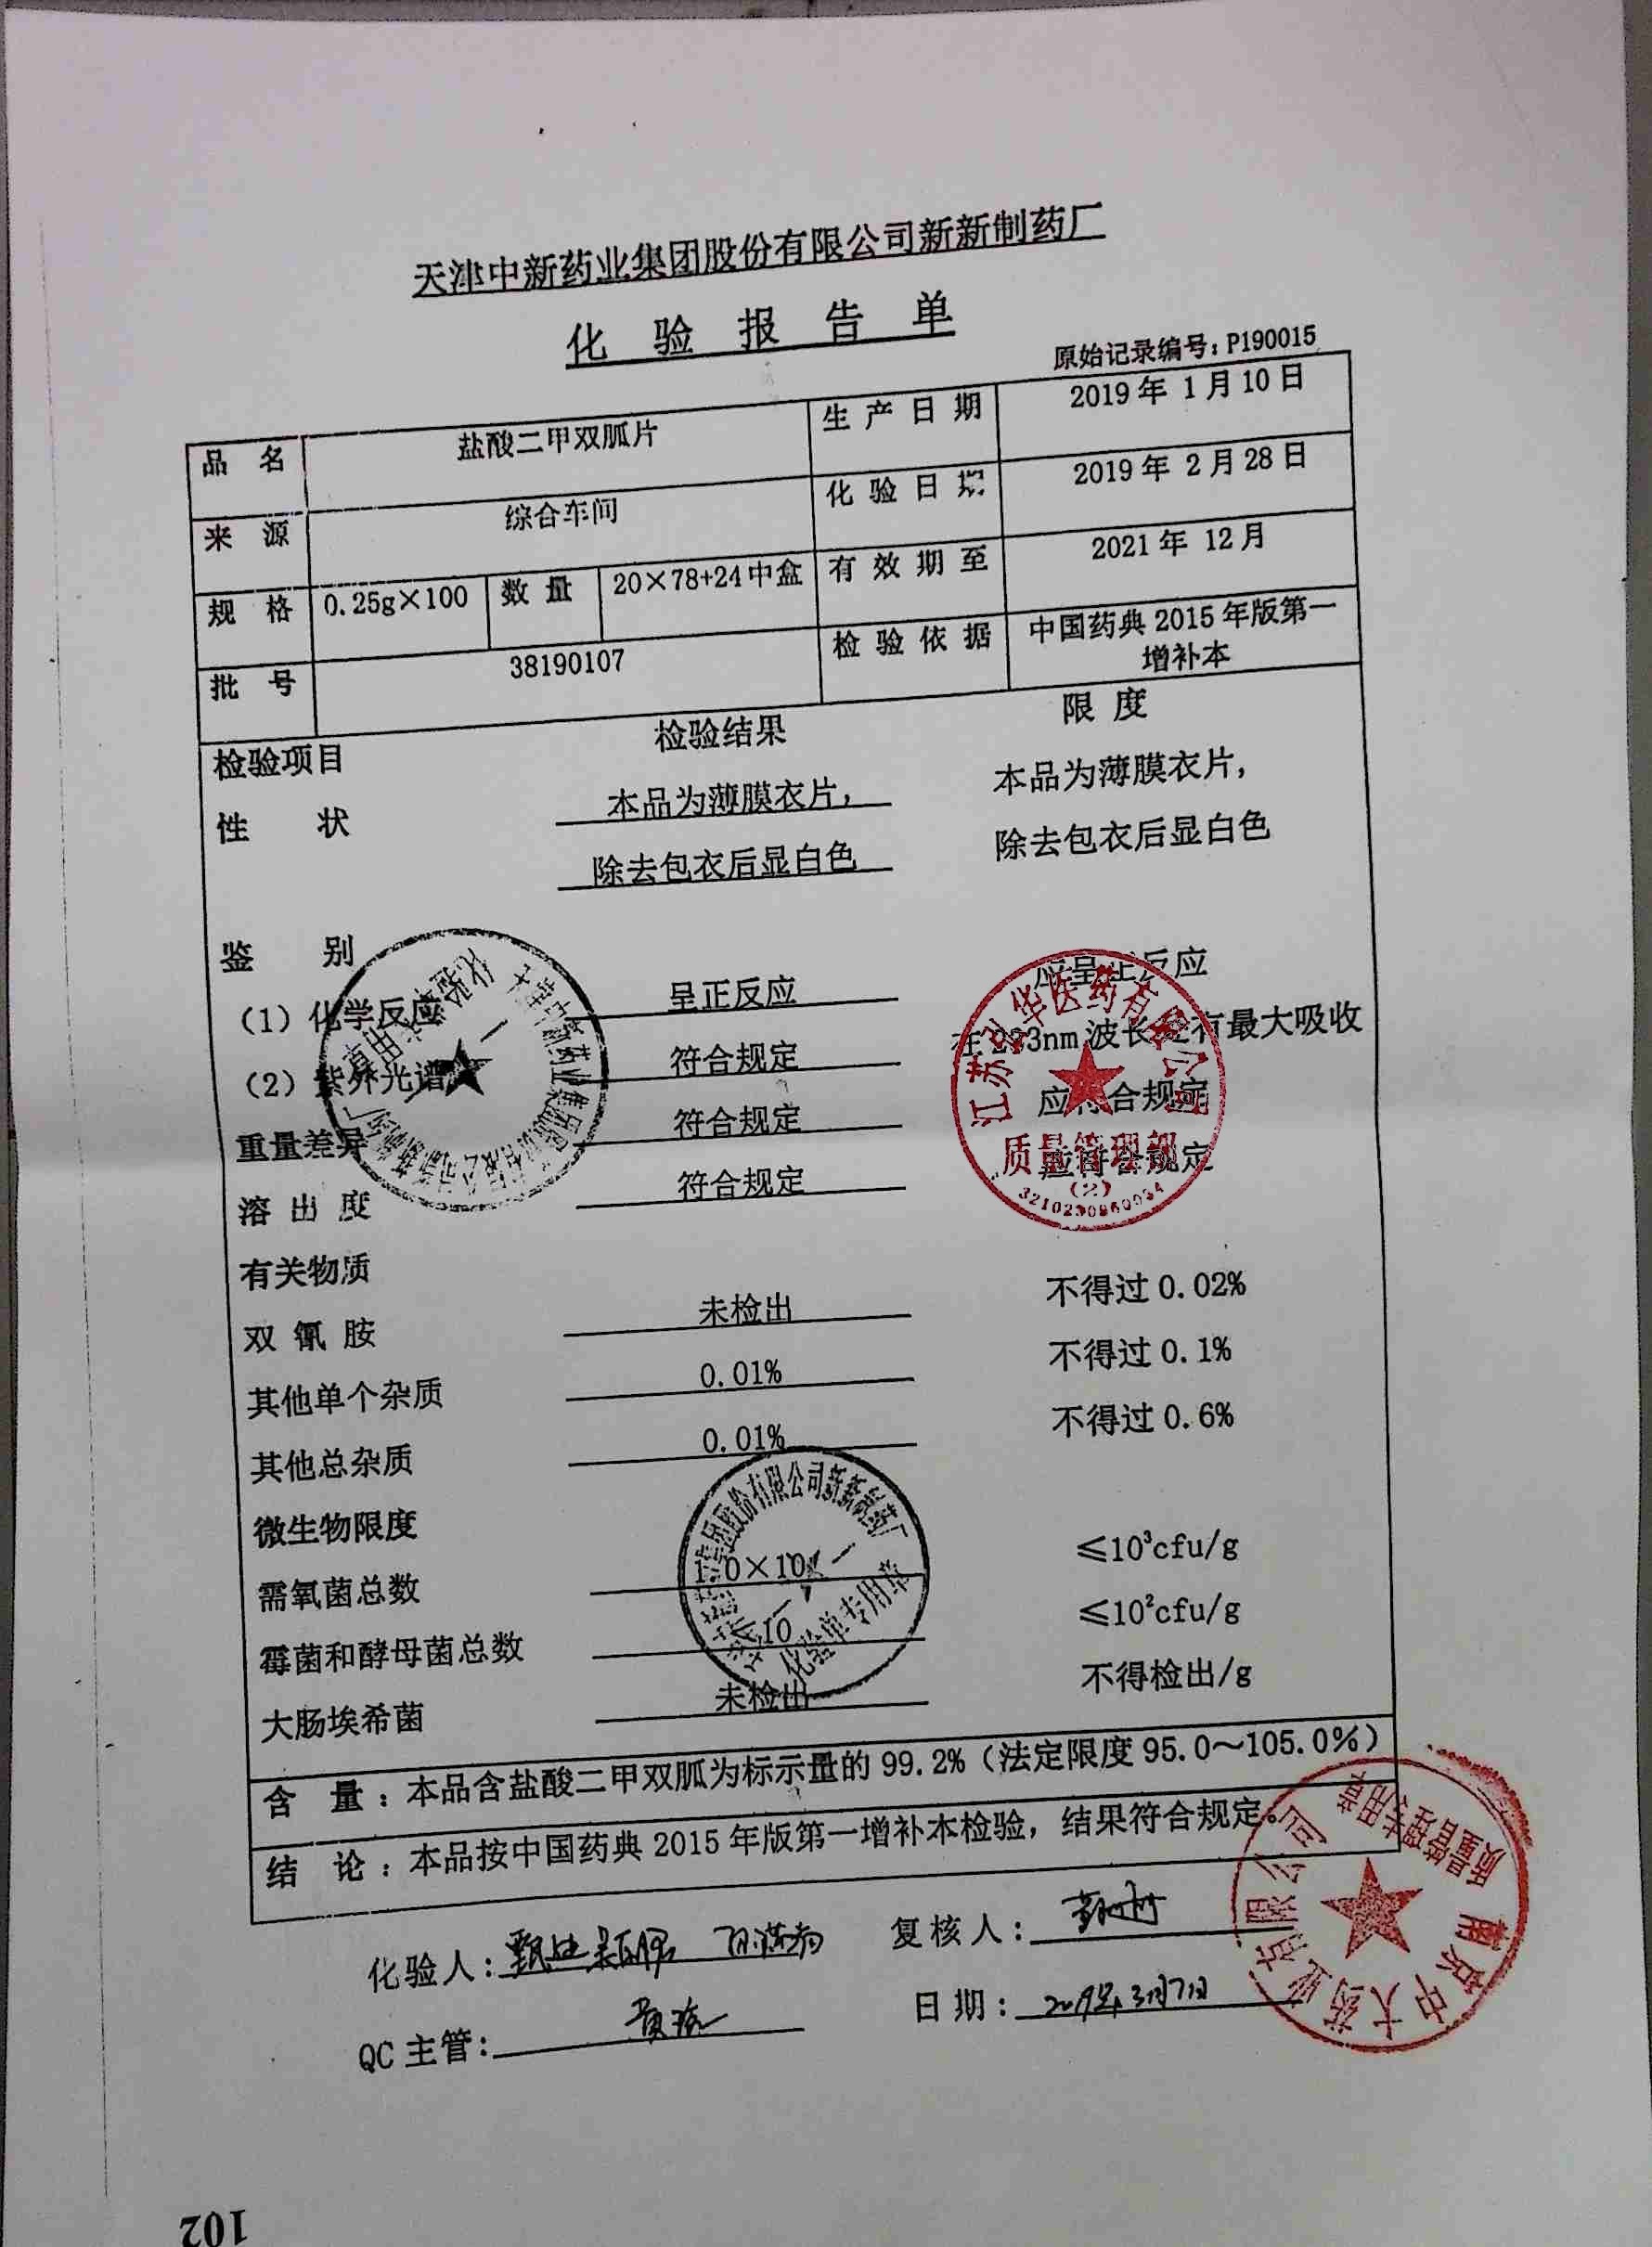 天津中新药业集团股份有限公司新新制药厂
化验报告单
原始记录编号：P190015
品名 盐酸二甲双胍片 生产日期 2019年 1月10日
来源 综合车间 化验日期 2019年 2月28日
规格 0.25g×100 数量 20×78+24中盒 有效期至 2021年 12月
批号 38190107 检验依据 中国药典2015年版第一
增补本
检验项目 检验结果 限度
性状 本品为薄膜衣片， 本品为薄膜衣片，
除去包衣后显白色 除去包衣后显白色
鉴别
（1）化学反应 呈正反应 应呈正反应
（2）紫外光谱 符合规定 在233nm波长处有最大吸收
重量差异 符合规定 应符合规定
溶出度 符合规定 应符合规定
有关物质
双氰胺 未检出 不得过0.02%
其他单个杂质 0.01% 不得过0.1%
其他总杂质 0.01% 不得过0.6%
微生物限度
需氧菌总数 1.0×10 ≤10³cfu/g
霉菌和酵母菌总数 10 ≤10²cfu/g
大肠埃希菌 未检出 不得检出/g
含量：本品含盐酸二甲双胍为标示量的99.2%（法定限度95.0～105.0%）
结论：本品按中国药典2015年版第一增补本检验，结果符合规定。
化验人： 复核人：
QC主管： 日期：2019年3月7日
天津中新药业集团股份有限公司新新制药厂
化验单专用章
华医药有限公司
质量管理部
（2）
集团股份有限公司新新制药厂
化验单专用章
南京中大药业有限公司
质量管理专用章
102